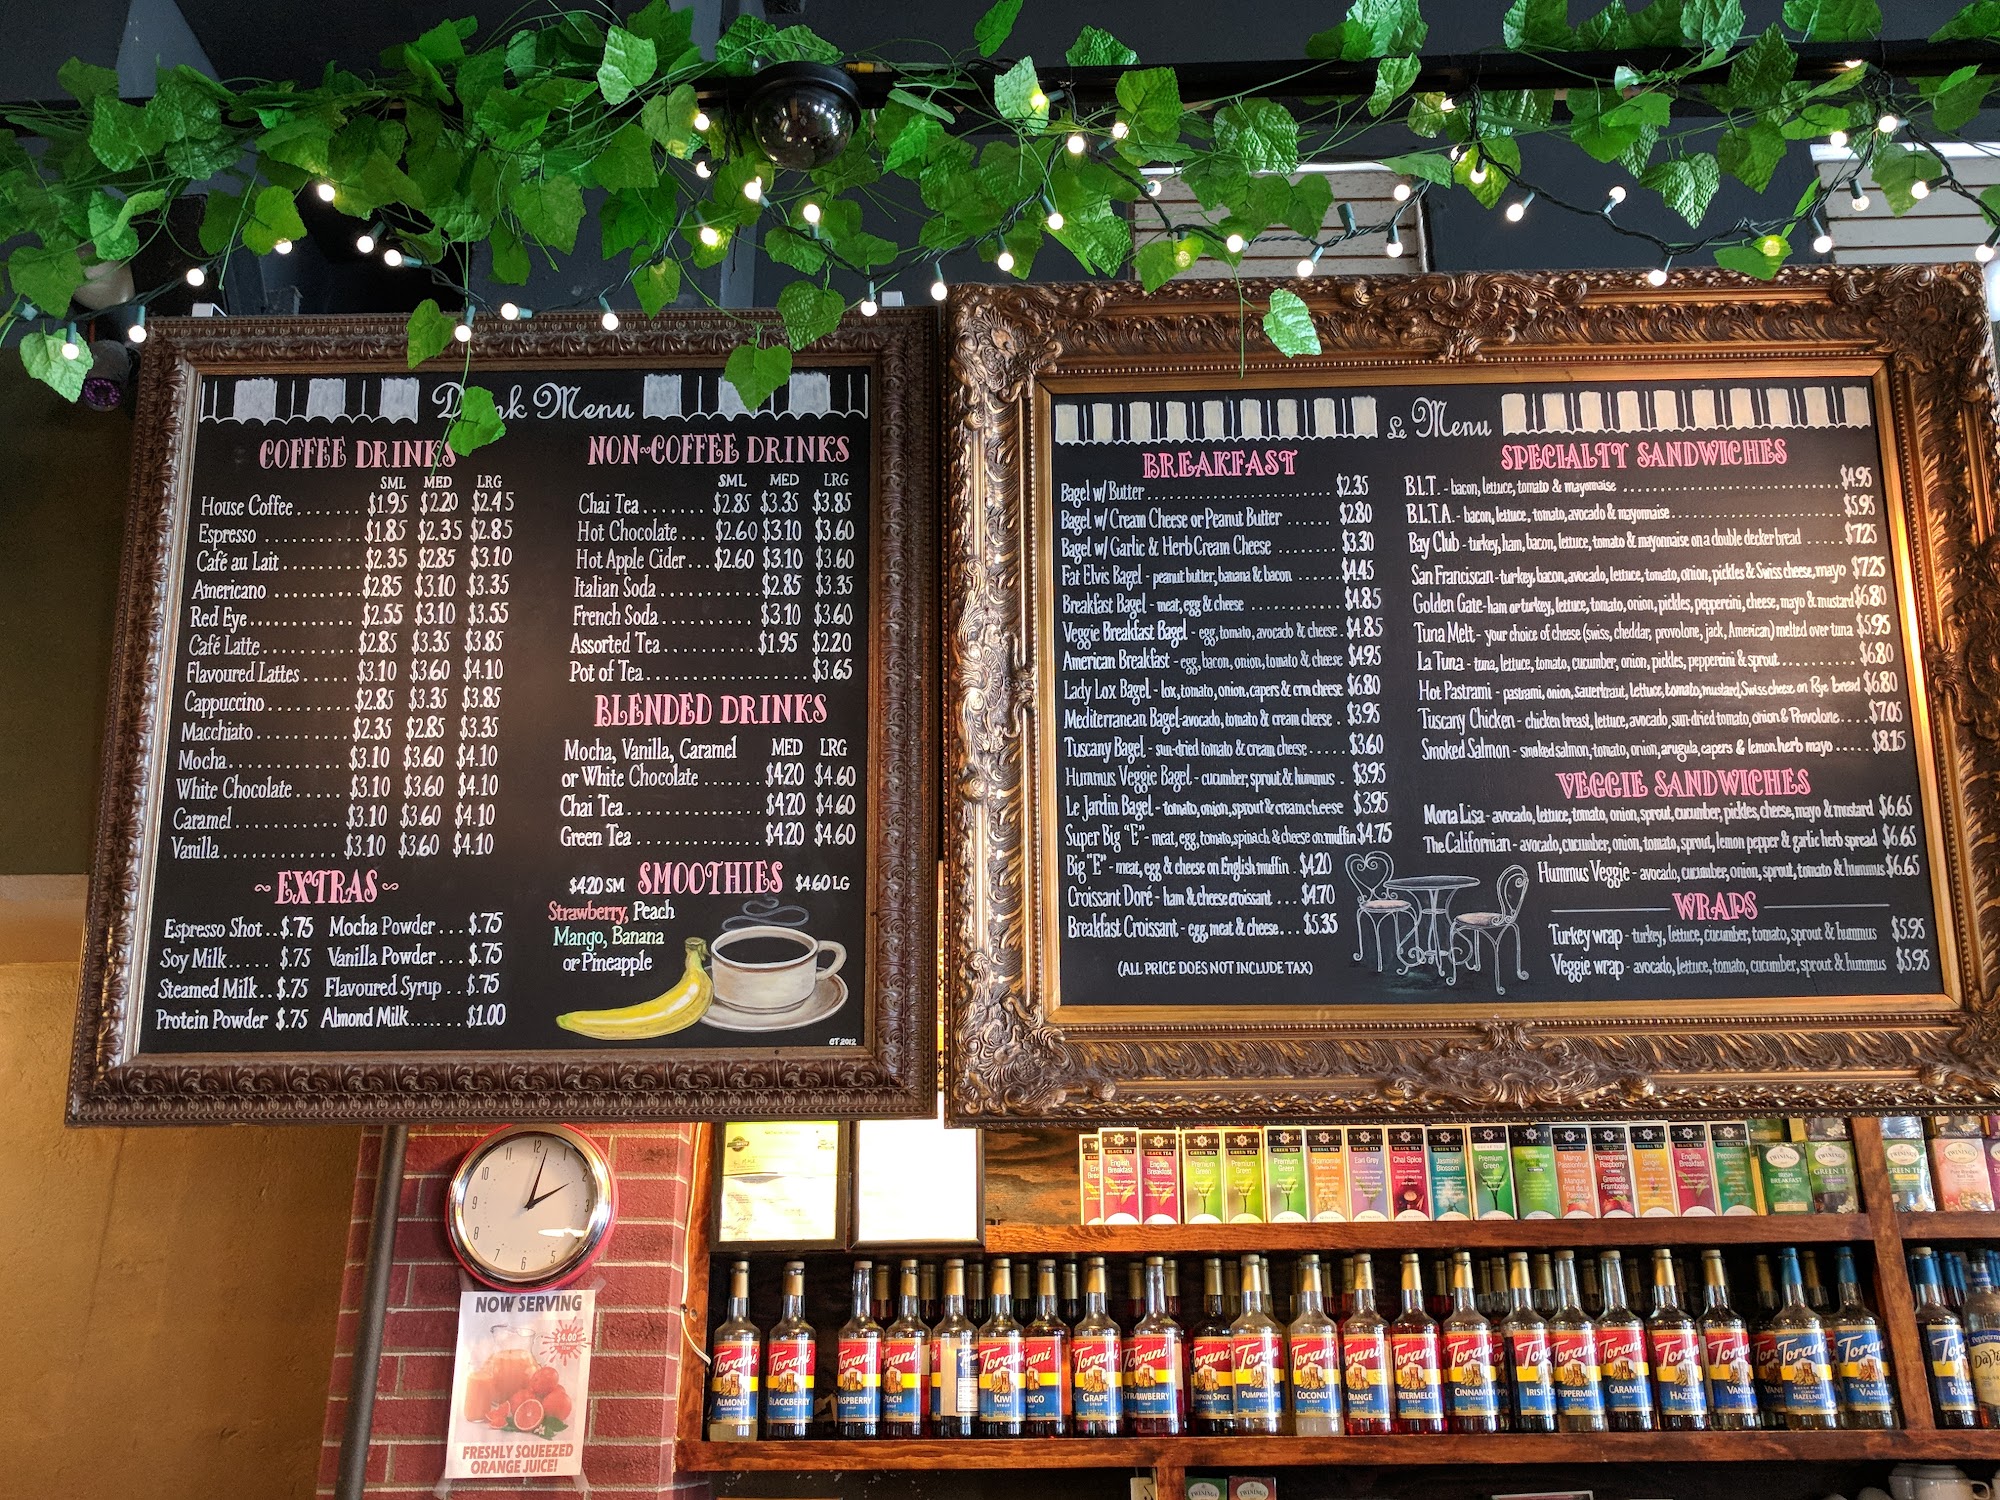 Drink Menu
COFFEE DRINKS
SML MED LRG
House Coffee ....... $1.95 $2.20 $2.45
Espresso ............ $1.85 $2.35 $2.85
Café au Lait .......... $2.35 $2.85 $3.10
Americano ........... $2.85 $3.10 $3.35
Red Eye .............. $2.55 $3.10 $3.55
Café Latte ............ $2.85 $3.35 $3.85
Flavoured Lattes ..... $3.10 $3.60 $4.10
Cappuccino .......... $2.85 $3.35 $3.85
Macchiato ........... $2.35 $2.85 $3.35
Mocha ............... $3.10 $3.60 $4.10
White Chocolate ..... $3.10 $3.60 $4.10
Caramel .............. $3.10 $3.60 $4.10
Vanilla ............... $3.10 $3.60 $4.10
~EXTRAS~
Espresso Shot .. $.75 Mocha Powder ... $.75
Soy Milk ..... $.75 Vanilla Powder ... $.75
Steamed Milk .. $.75 Flavoured Syrup .. $.75
Protein Powder $.75 Almond Milk ...... $1.00
NON-COFFEE DRINKS
SML MED LRG
Chai Tea ....... $2.85 $3.35 $3.85
Hot Chocolate ... $2.60 $3.10 $3.60
Hot Apple Cider ... $2.60 $3.10 $3.60
Italian Soda ........... $2.85 $3.35
French Soda ........... $3.10 $3.60
Assorted Tea ........... $1.95 $2.20
Pot of Tea .................. $3.65
BLENDED DRINKS
Mocha, Vanilla, Caramel MED LRG
or White Chocolate ....... $4.20 $4.60
Chai Tea ............... $4.20 $4.60
Green Tea .............. $4.20 $4.60
$4.20 SM SMOOTHIES $4.60 LG
Strawberry, Peach
Mango, Banana
or Pineapple
GT 2012
Le Menu
BREAKFAST
Bagel w/ Butter ........................... $2.35
Bagel w/ Cream Cheese or Peanut Butter ...... $2.80
Bagel w/ Garlic & Herb Cream Cheese ........ $3.30
Fat Elvis Bagel - peanut butter, banana & bacon ...... $4.45
Breakfast Bagel - meat, egg & cheese ............ $4.85
Veggie Breakfast Bagel - egg, tomato, avocado & cheese . $4.85
American Breakfast - egg, bacon, onion, tomato & cheese $4.95
Lady Lox Bagel - lox, tomato, onion, capers & crm cheese $6.80
Mediterranean Bagel - avocado, tomato & cream cheese . $3.95
Tuscany Bagel - sun-dried tomato & cream cheese ..... $3.60
Hummus Veggie Bagel - cucumber, sprout & hummus . $3.95
Le Jardin Bagel - tomato, onion, sprout & cream cheese $3.95
Super Big "E" - meat, egg, tomato, spinach & cheese on muffin $4.75
Big "E" - meat, egg & cheese on English muffin . $4.20
Croissant Doré - ham & cheese croissant ... $4.70
Breakfast Croissant - egg, meat & cheese ... $5.35
(ALL PRICE DOES NOT INCLUDE TAX)
SPECIALTY SANDWICHES
B.L.T. - bacon, lettuce, tomato & mayonnaise ........................... $4.95
B.L.T.A. - bacon, lettuce, tomato, avocado & mayonnaise ..................... $5.95
Bay Club - turkey, ham, bacon, lettuce, tomato & mayonnaise on a double decker bread ..... $7.25
San Franciscan - turkey, bacon, avocado, lettuce, tomato, onion, pickles & Swiss cheese, mayo $7.25
Golden Gate - ham or turkey, lettuce, tomato, onion, pickles, peppercini, cheese, mayo & mustard $6.80
Tuna Melt - your choice of cheese (swiss, cheddar, provolone, jack, American) melted over tuna $5.95
La Tuna - tuna, lettuce, tomato, cucumber, onion, pickles, peppercini & sprout .......... $6.80
Hot Pastrami - pastrami, onion, sauerkraut, lettuce, tomato, mustard, Swiss cheese on Rye bread $6.80
Tuscany Chicken - chicken breast, lettuce, avocado, sun-dried tomato, onion & Provolone .... $7.05
Smoked Salmon - smoked salmon, tomato, onion, arugula, capers & lemon herb mayo ..... $8.15
VEGGIE SANDWICHES
Mona Lisa - avocado, lettuce, tomato, onion, sprout, cucumber, pickles, cheese, mayo & mustard $6.65
The Californian - avocado, cucumber, onion, tomato, sprout, lemon pepper & garlic herb spread $6.65
Hummus Veggie - avocado, cucumber, onion, sprout, tomato & hummus $6.65
WRAPS
Turkey wrap - turkey, lettuce, cucumber, tomato, sprout & hummus $5.95
Veggie wrap - avocado, lettuce, tomato, cucumber, sprout & hummus $5.95
12 1 2 3 5 6 7 8 9 10 11
NOW SERVING
$4.00
FRESHLY SQUEEZED
ORANGE JUICE!
STASH
English Breakfast
English Breakfast
Premium Green
Premium Green
Chamomile
Earl Grey
Chai Spice
Jasmine Blossom
Premium Green
Pomegranate Raspberry
English Breakfast
TWININGS
GREEN TEA
Torani
ALMOND
BLACKBERRY
RASPBERRY
PEACH
KIWI
MANGO
GRAPE
STRAWBERRY
PUMPKIN SPICE
PUMPKIN
COCONUT
ORANGE
WATERMELON
CINNAMON
IRISH
PEPPERMINT
CARAMEL
HAZELNUT
VANILLA
HAZELNUT
VANILLA
TWININGS
TWININGS